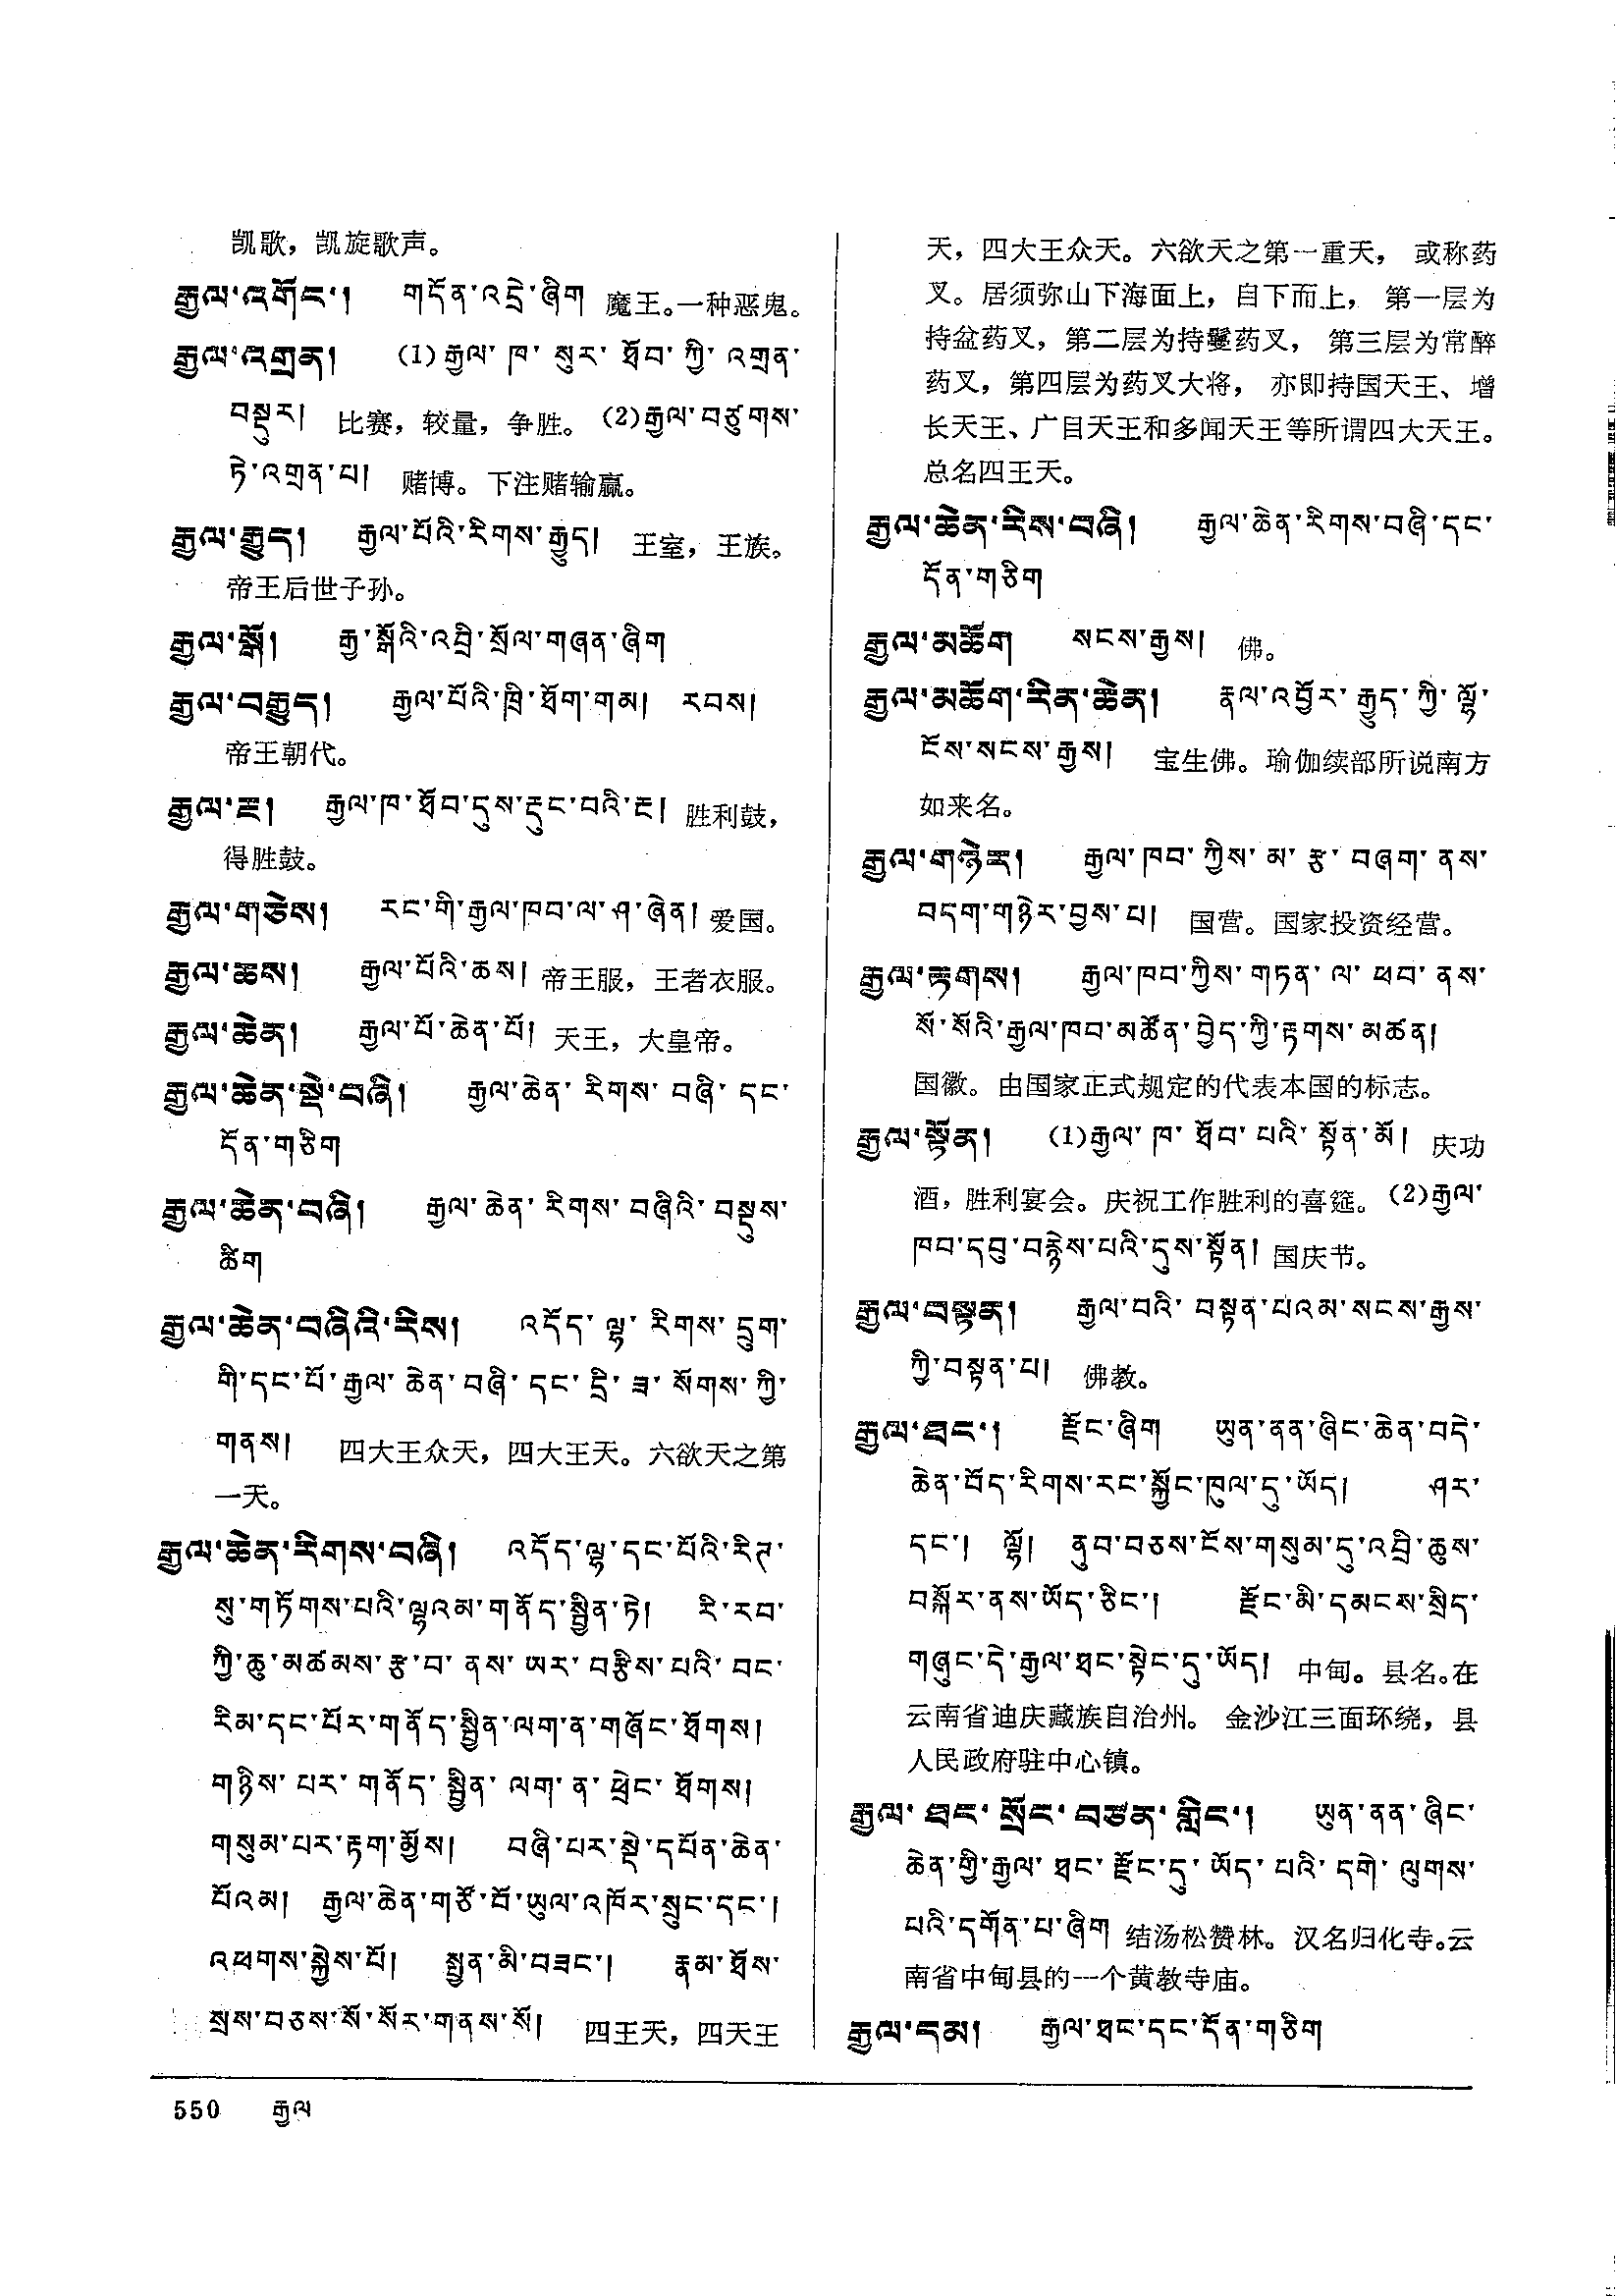 凯歌，凯旋歌声。
རྒྱལ་འགོང་།　གདོན་འདྲེ་ཞིག 魔王。一种恶鬼。
རྒྱལ་འགྲན།　(1)རྒྱལ་ཁ་སུར་ཐོབ་ཀྱི་འགྲན་
བསྡུར།　比赛，较量，争胜。(2)རྒྱལ་བཙུགས་
ཏེ་འགྲན་པ།　赌博。下注赌输赢。
རྒྱལ་རྒྱུད།　རྒྱལ་པོའི་རིགས་རྒྱུད།　王室，王族。
帝王后世子孙。
རྒྱལ་སྒོ།　རྒྱ་སྒོའི་འབྲི་སྲོལ་གཞན་ཞིག
རྒྱལ་བརྒྱུད།　རྒྱལ་པོའི་ཁྲི་ཐོག་གམ།　རབས།
帝王朝代。
རྒྱལ་རྔ།　རྒྱལ་ཁ་ཐོབ་དུས་རྡུང་བའི་རྔ། 胜利鼓，
得胜鼓。
རྒྱལ་གཅེས།　རང་གི་རྒྱལ་ཁབ་ལ་ཤ་ཞེན། 爱国。
རྒྱལ་ཆས།　རྒྱལ་པོའི་ཆས། 帝王服，王者衣服。
རྒྱལ་ཆེན།　རྒྱལ་པོ་ཆེན་པོ། 天王，大皇帝。
རྒྱལ་ཆེན་སྡེ་བཞི།　རྒྱལ་ཆེན་རིགས་བཞི་དང་
དོན་གཅིག
རྒྱལ་ཆེན་བཞི།　རྒྱལ་ཆེན་རིགས་བཞིའི་བསྡུས་
ཚིག
རྒྱལ་ཆེན་བཞིའི་རིས།　འདོད་ལྷ་རིགས་དྲུག་
གི་དང་པོ་རྒྱལ་ཆེན་བཞི་དང་དྲི་ཟ་སོགས་ཀྱི་
གནས།　四大王众天，四大王天。六欲天之第
一天。
རྒྱལ་ཆེན་རིགས་བཞི།　འདོད་ལྷ་དང་པོའི་རིཊ་
སུ་གཏོགས་པའི་ལྷའམ་གནོད་སྦྱིན་ཏེ།　རི་རབ་
ཀྱི་ཆུ་མཚམས་རྩ་བ་ནས་ཡར་བརྩིས་པའི་བང་
རིམ་དང་པོར་གནོད་སྦྱིན་ལག་ན་གཞོང་ཐོགས།
གཉིས་པར་གནོད་སྦྱིན་ལག་ན་ཕྲེང་ཐོགས།
གསུམ་པར་རྟག་མྱོས།　བཞི་པར་སྡེ་དཔོན་ཆེན་
པོའམ།　རྒྱལ་ཆེན་གཙོ་བོ་ཡུལ་འཁོར་སྲུང་དང་།
འཕགས་སྐྱེས་པོ།　སྤྱན་མི་བཟང་།　རྣམ་ཐོས་
སྲས་བཅས་སོ་སོར་གནས་སོ།　四王天，四天王
天，四大王众天。六欲天之第一重天， 或称药
叉。居须弥山下海面上，自下而上， 第一层为
持盆药叉，第二层为持鬘药叉， 第三层为常醉
药叉，第四层为药叉大将， 亦即持国天王、增
长天王、广目天王和多闻天王等所谓四大天王。
总名四王天。
རྒྱལ་ཆེན་རིས་བཞི།　རྒྱལ་ཆེན་རིགས་བཞི་དང་
དོན་གཅིག
རྒྱལ་མཆོག　སངས་རྒྱས།　佛。
རྒྱལ་མཆོག་རིན་ཆེན།　རྣལ་འབྱོར་རྒྱུད་ཀྱི་ལྷོ་
ངོས་སངས་རྒྱས།　宝生佛。瑜伽续部所说南方
如来名。
རྒྱལ་གཉེར།　རྒྱལ་ཁབ་ཀྱིས་མ་རྩ་བཞག་ནས་
བདག་གཉེར་བྱས་པ།　国营。国家投资经营。
རྒྱལ་རྟགས།　རྒྱལ་ཁབ་ཀྱིས་གཏན་ལ་ཕབ་ནས་
སོ་སོའི་རྒྱལ་ཁབ་མཚོན་བྱེད་ཀྱི་རྟགས་མཚན།
国徽。由国家正式规定的代表本国的标志。
རྒྱལ་སྟོན།　(1)རྒྱལ་ཁ་ཐོབ་པའི་སྟོན་མོ།　庆功
酒，胜利宴会。庆祝工作胜利的喜筵。(2)རྒྱལ་
ཁབ་དབུ་བརྙེས་པའི་དུས་སྟོན། 国庆节。
རྒྱལ་བསྟན།　རྒྱལ་བའི་བསྟན་པའམ་སངས་རྒྱས་
ཀྱི་བསྟན་པ།　佛教。
རྒྱལ་ཐང་།　རྫོང་ཞིག　ཡུན་ནན་ཞིང་ཆེན་བདེ་
ཆེན་བོད་རིགས་རང་སྐྱོང་ཁུལ་དུ་ཡོད།　ཤར་
དང་།　ལྷོ།　ནུབ་བཅས་ངོས་གསུམ་དུ་འབྲི་ཆུས་
བསྐོར་ནས་ཡོད་ཅིང་།　རྫོང་མི་དམངས་སྲིད་
གཞུང་དེ་རྒྱལ་ཐང་སྟེང་དུ་ཡོད།　中甸。县名。在
云南省迪庆藏族自治州。 金沙江三面环绕，县
人民政府驻中心镇。
རྒྱལ་ཐང་སྲོང་བཙན་གླིང་།　ཡུན་ནན་ཞིང་
ཆེན་གྱི་རྒྱལ་ཐང་རྫོང་དུ་ཡོད་པའི་དགེ་ལུགས་
པའི་དགོན་པ་ཞིག 结汤松赞林。汉名归化寺。云
南省中甸县的一个黄教寺庙。
རྒྱལ་དམ།　རྒྱལ་ཐང་དང་དོན་གཅིག
550　རྒྱལ